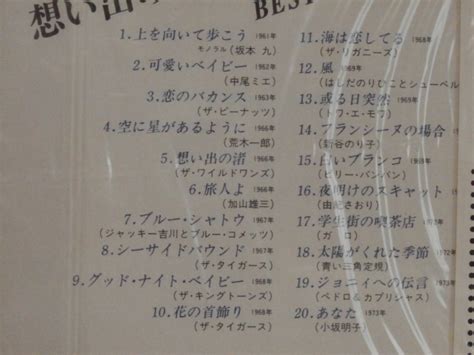 想い出の
BEST
1.上を向いて歩こう 1961年
モノラル(坂本 九)
2.可愛いベイビー 1962年
(中尾ミエ)
3.恋のバカンス 1963年
(ザ・ピーナッツ)
4.空に星があるように 1966年
(荒木一郎)
5.想い出の渚 1966年
(ザ・ワイルドワンズ)
6.旅人よ 1966年
(加山雄三)
7.ブルー・シャトウ 1967年
(ジャッキー吉川とブルー・コメッツ)
8.シーサイドバウンド 1967年
(ザ・タイガース)
9.グッド・ナイト・ベイビー 1968年
(ザ・キングトーンズ)
10.花の首飾り 1968年
(ザ・タイガース)
11.海は恋してる 1968年
(ザ・リガニーズ)
12.風 1969年
(はしだのりひことシューベル
13.或る日突然 1969年
(トワ・エ・モワ)
14.フランシーヌの場合 1969年
(新谷のり子)
15.白いブランコ 1969年
(ビリー・バンバン)
16.夜明けのスキャット 1969年
(由紀さおり)
17.学生街の喫茶店 1972年
(ガ ロ)
18.太陽がくれた季節 1972年
(青い三角定規)
19.ジョニィへの伝言 1973年
(ペドロ&カプリシャス)
20.あなた 1973年
(小坂明子)